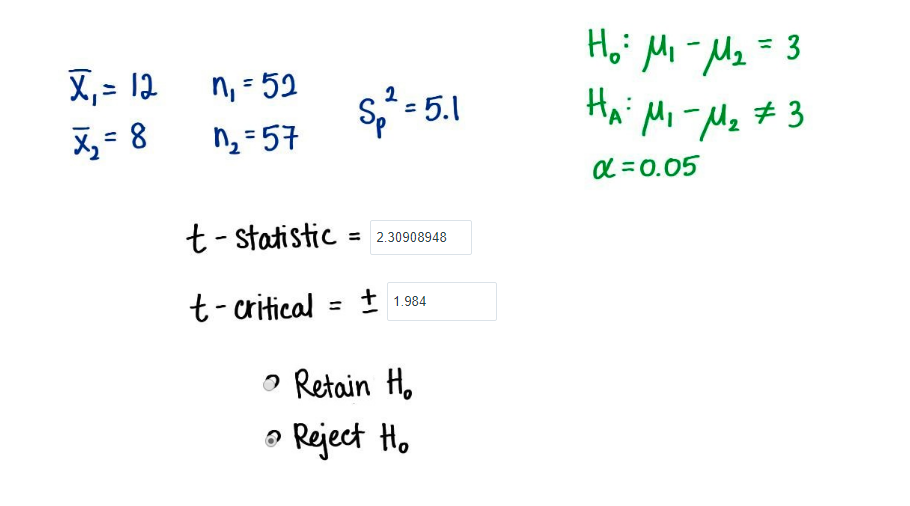 x̄₁ = 12 n₁ = 52
x̄₂ = 8 n₂ = 57
Sp² = 5.1
H₀: μ₁ - μ₂ = 3
H_A: μ₁ - μ₂ ≠ 3
α = 0.05
t - statistic = 2.30908948
t - critical = ± 1.984
Retain H₀
Reject H₀